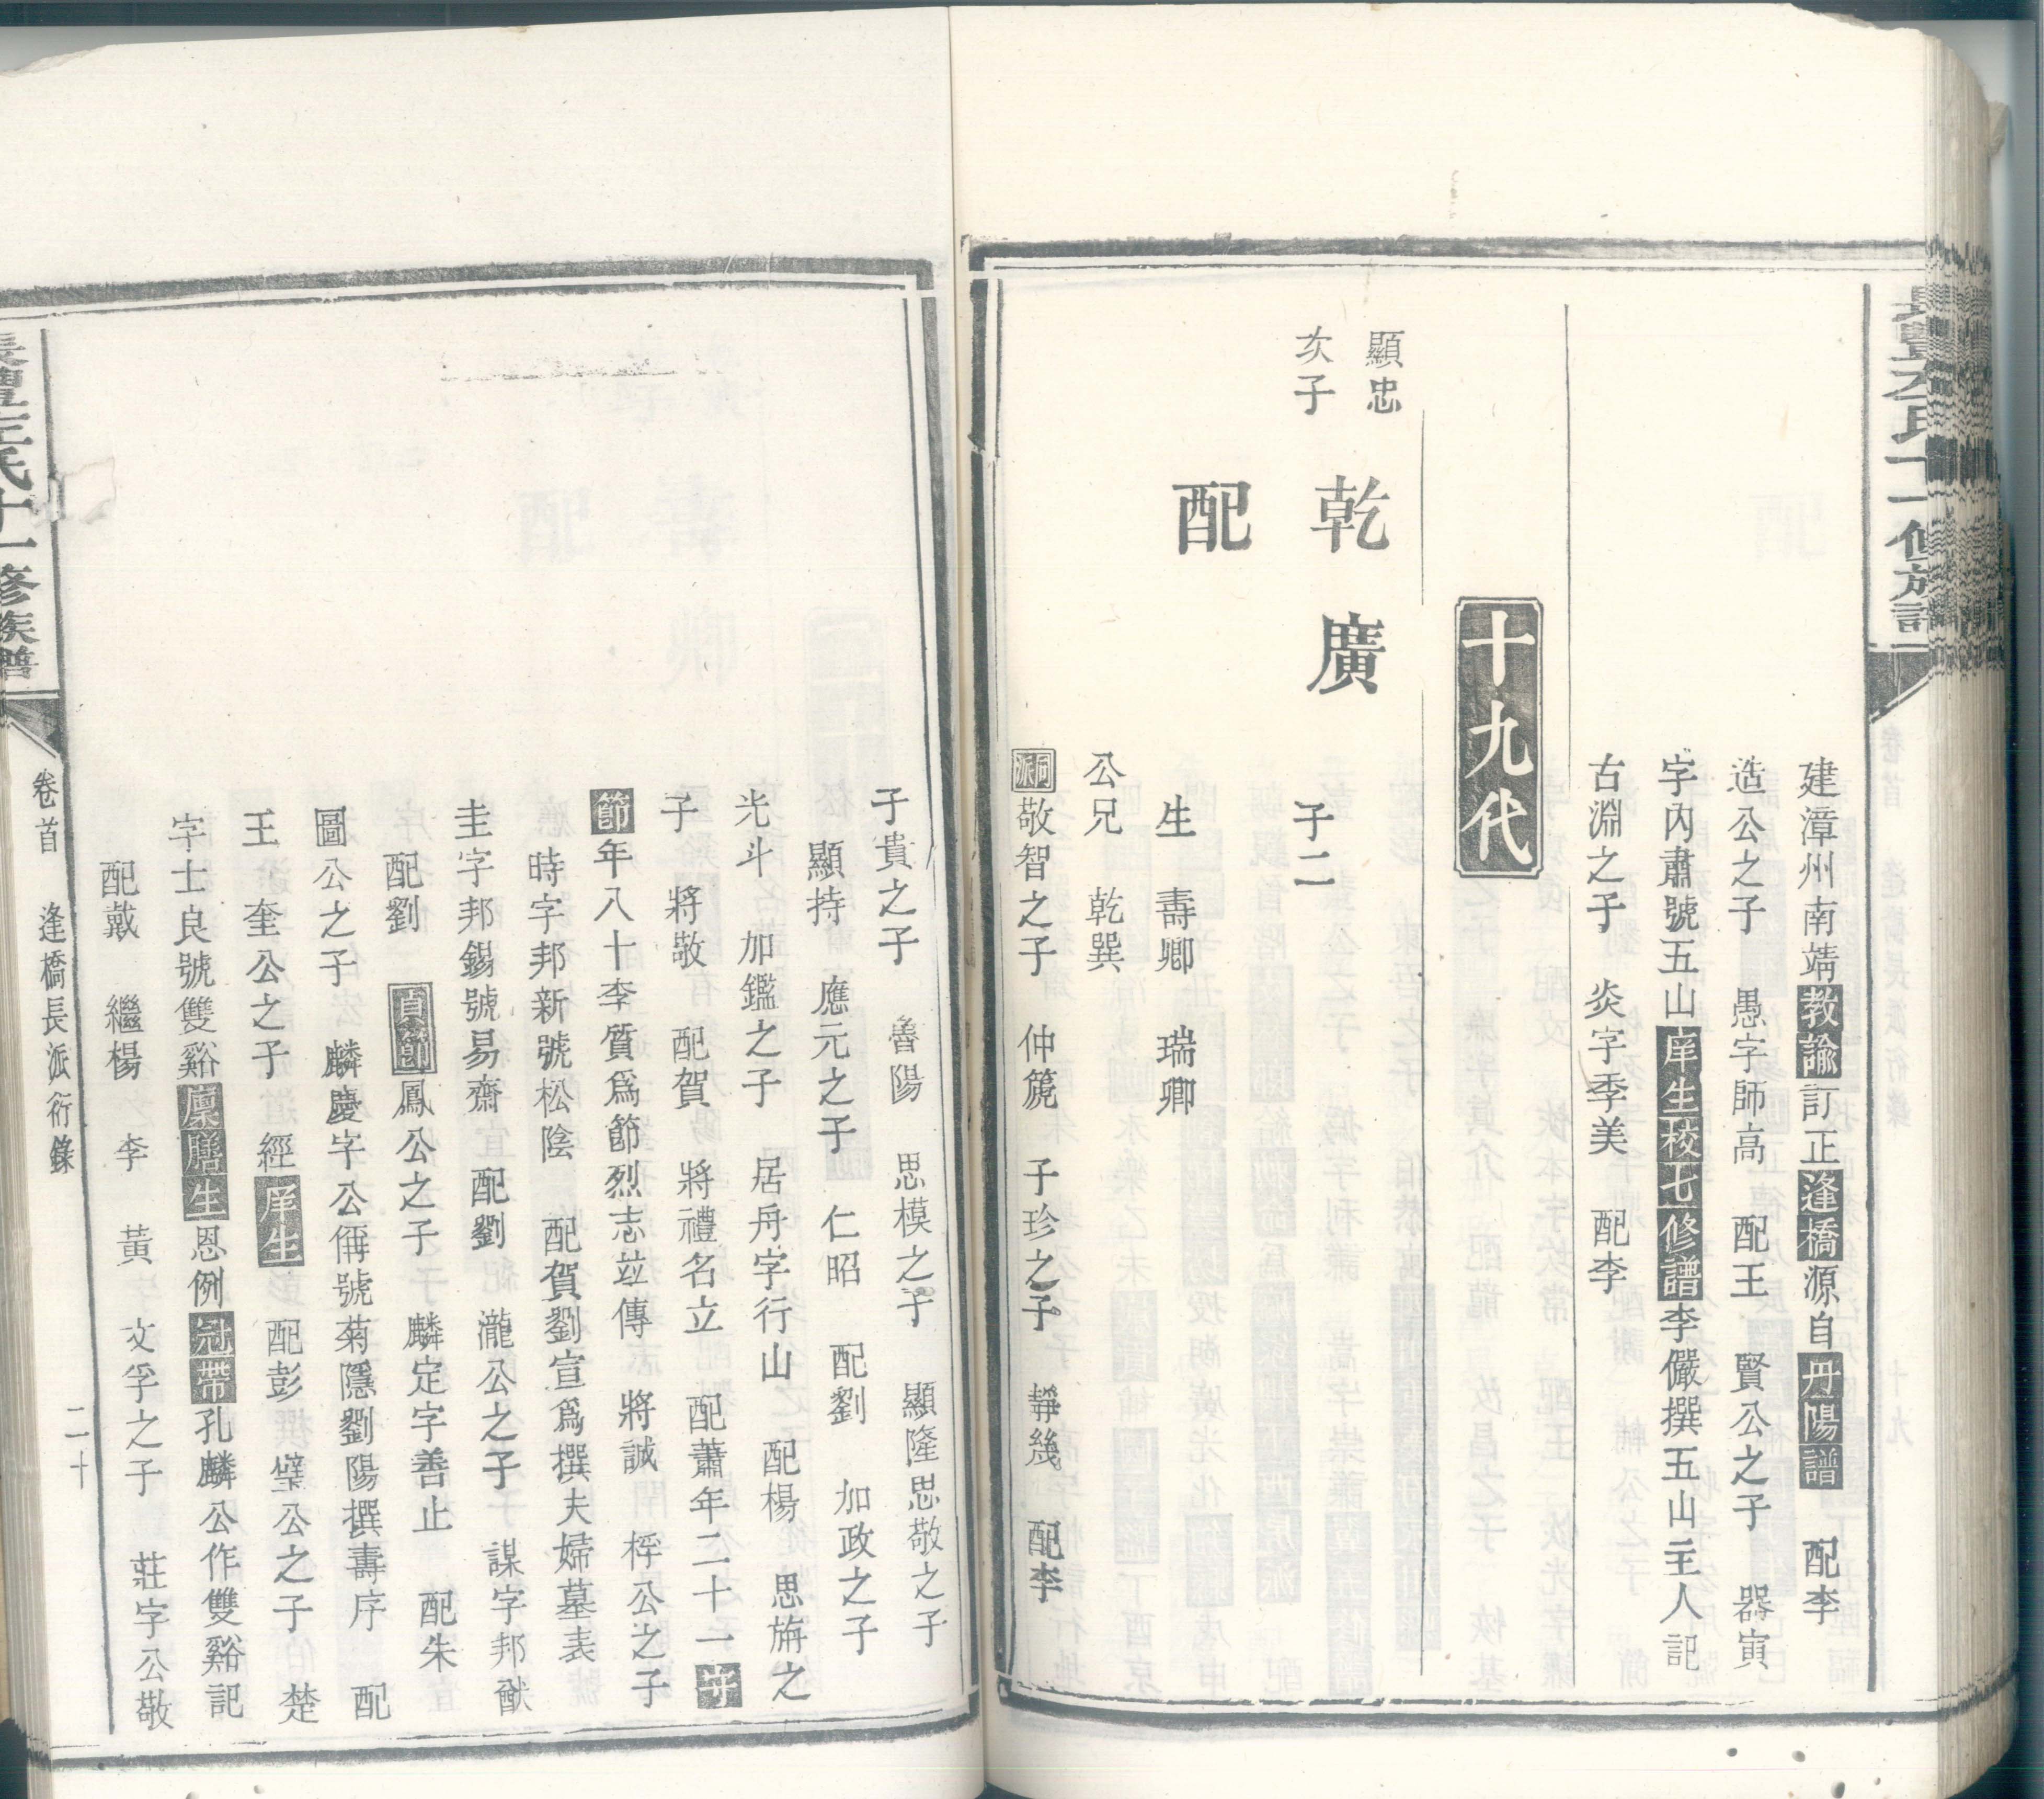 建漳州南靖教諭訂正逢橋源自丹陽譜 配李
造公之子 愚字師高 配王 賢公之子 器寅
字內肅號五山庠生校七修譜李儼撰五山主人記
古淵之子 炎字季美 配李
十九代
顯忠
次子
乾廣
子二
配
生 壽卿 瑞卿
公兄 乾巽
同派敬智之子 仲篪 子珍之子 靜幾 配李
子貴之子 魯陽 思模之子 顯隆思敬之子
顯持 應元之子 仁昭 配劉 加政之子
光斗 加鑑之子 居舟字行山 配楊 思旃之
子 將敬 配賀 將禮名立 配蕭年二十一守
節年八十李質爲節烈志並傳 將誠 梓公之子
時字邦新號松陰 配賀劉宣爲撰夫婦墓表
圭字邦錫號易齋 配劉 瀧公之子 謀字邦猷
配劉 貞節鳳公之子 麟定字善止 配朱
圖公之子 麟慶字公偁號菊隱劉陽撰壽序 配
王 奎公之子 經庠生 配彭 璧公之子 楚
字士良號雙谿廩膳生恩例冠帶孔麟公作雙谿記
配戴 繼楊 李 黃 文孚之子 莊字公敬
卷首 逢橋長派衍錄 二十